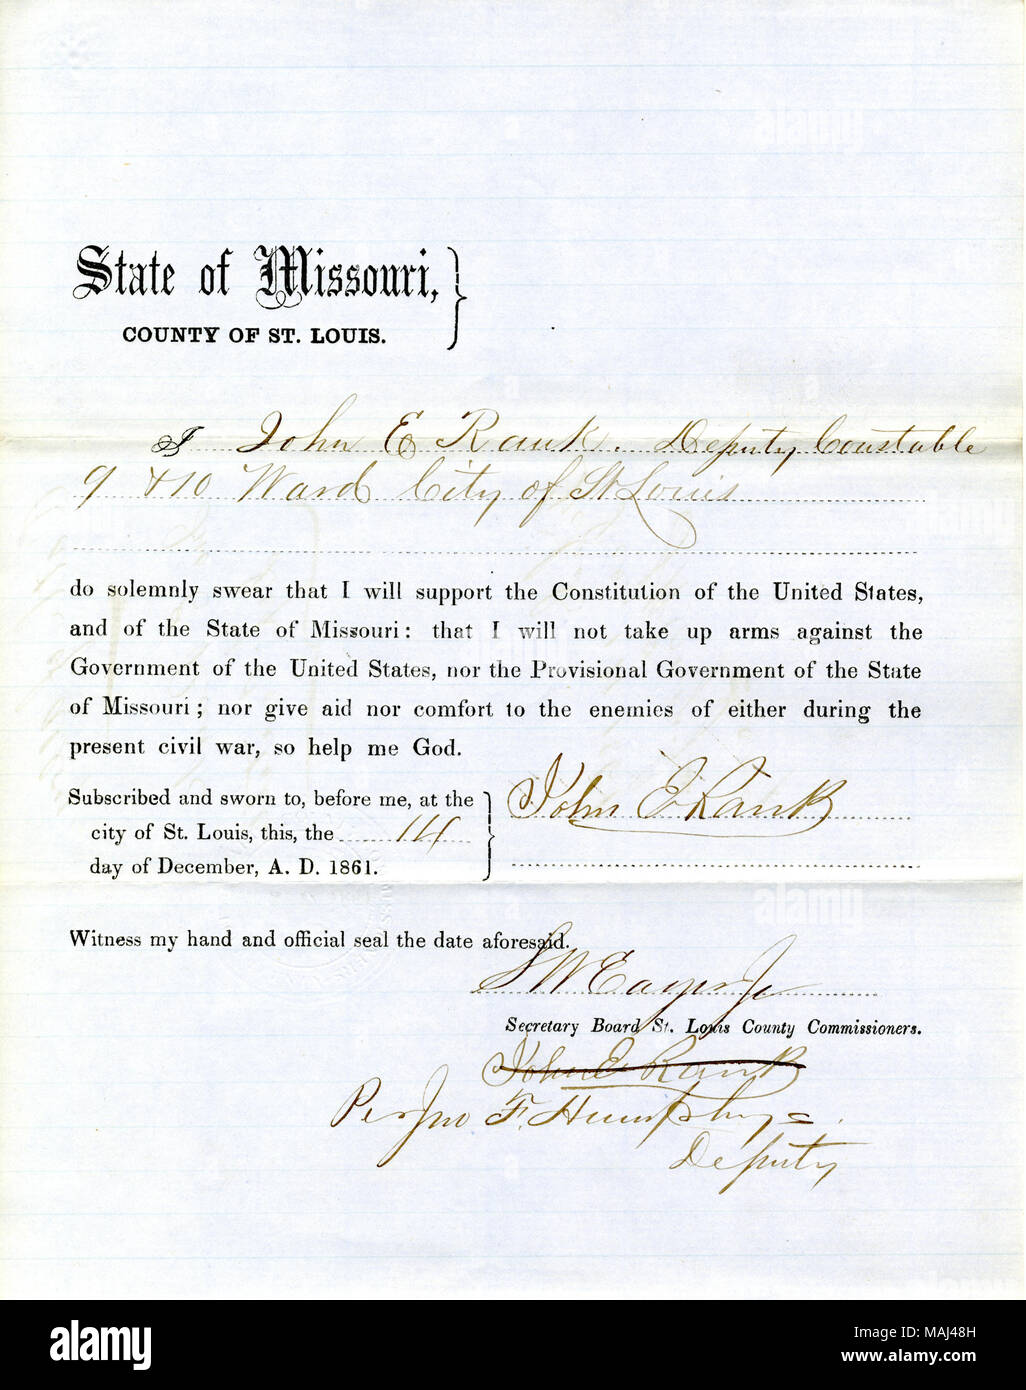 State of Missouri,
COUNTY OF ST. LOUIS.
I John E Rank. Deputy Constable
9 & 10 Ward City of St Louis
do solemnly swear that I will support the Constitution of the United States,
and of the State of Missouri: that I will not take up arms against the
Government of the United States, nor the Provisional Government of the State
of Missouri; nor give aid nor comfort to the enemies of either during the
present civil war, so help me God.
Subscribed and sworn to, before me, at the
city of St. Louis, this, the 14
day of December, A. D. 1861.
John E Rank
Witness my hand and official seal the date aforesaid.
S W Eager Jr
Secretary Board St. Louis County Commissioners.
John E Rank
Per Jno F. Humphrys.
Deputy
alamy
Image ID: MAJ48H
www.alamy.com